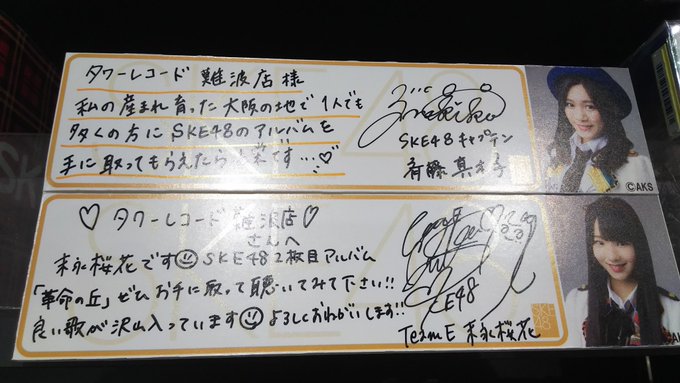 タワーレコード 難波店 様
私の産まれ育った大阪の地で1人でも
多くの方にSKE48のアルバムを
手に取ってもらえたら幸せです…♡
SKE48 キャプテン
斉藤真木子
©AKS
♡タワーレコード 難波店♡
さんへ
末永桜花です SKE48 2枚目アルバム
「革命の丘」ぜひお手に取って聴いてみて下さい!!
良い歌が沢山入っています よろしくおねがいします!!
SKE48
Team E 末永桜花